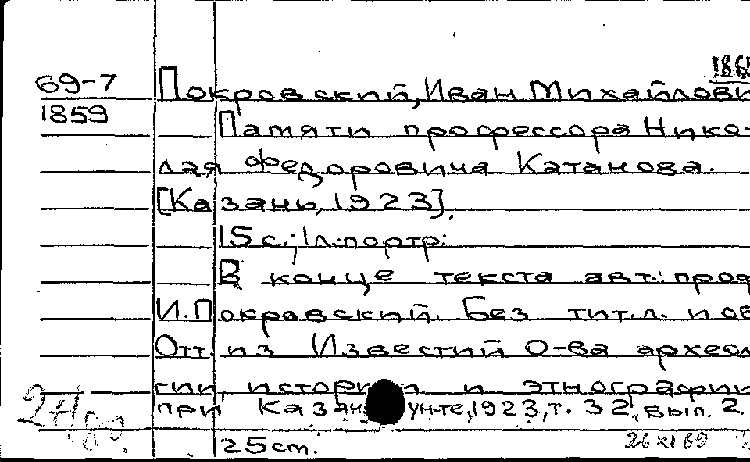 186
69-7 Покровский, Иван Михайлови
1859 Памяти профессора Нико-
лая Федоровича Катанова.
[Казань, 1923].
15 с.; 1 л. портр.
В конце текста авт.: проф
И. Покровский. Без тит. л. и об
Отт. из Известий О-ва археол
гии, истории и этнографии
при Казан ун-те, 1923, т. 32, вып. 2.
25 cm. 26 XI 69